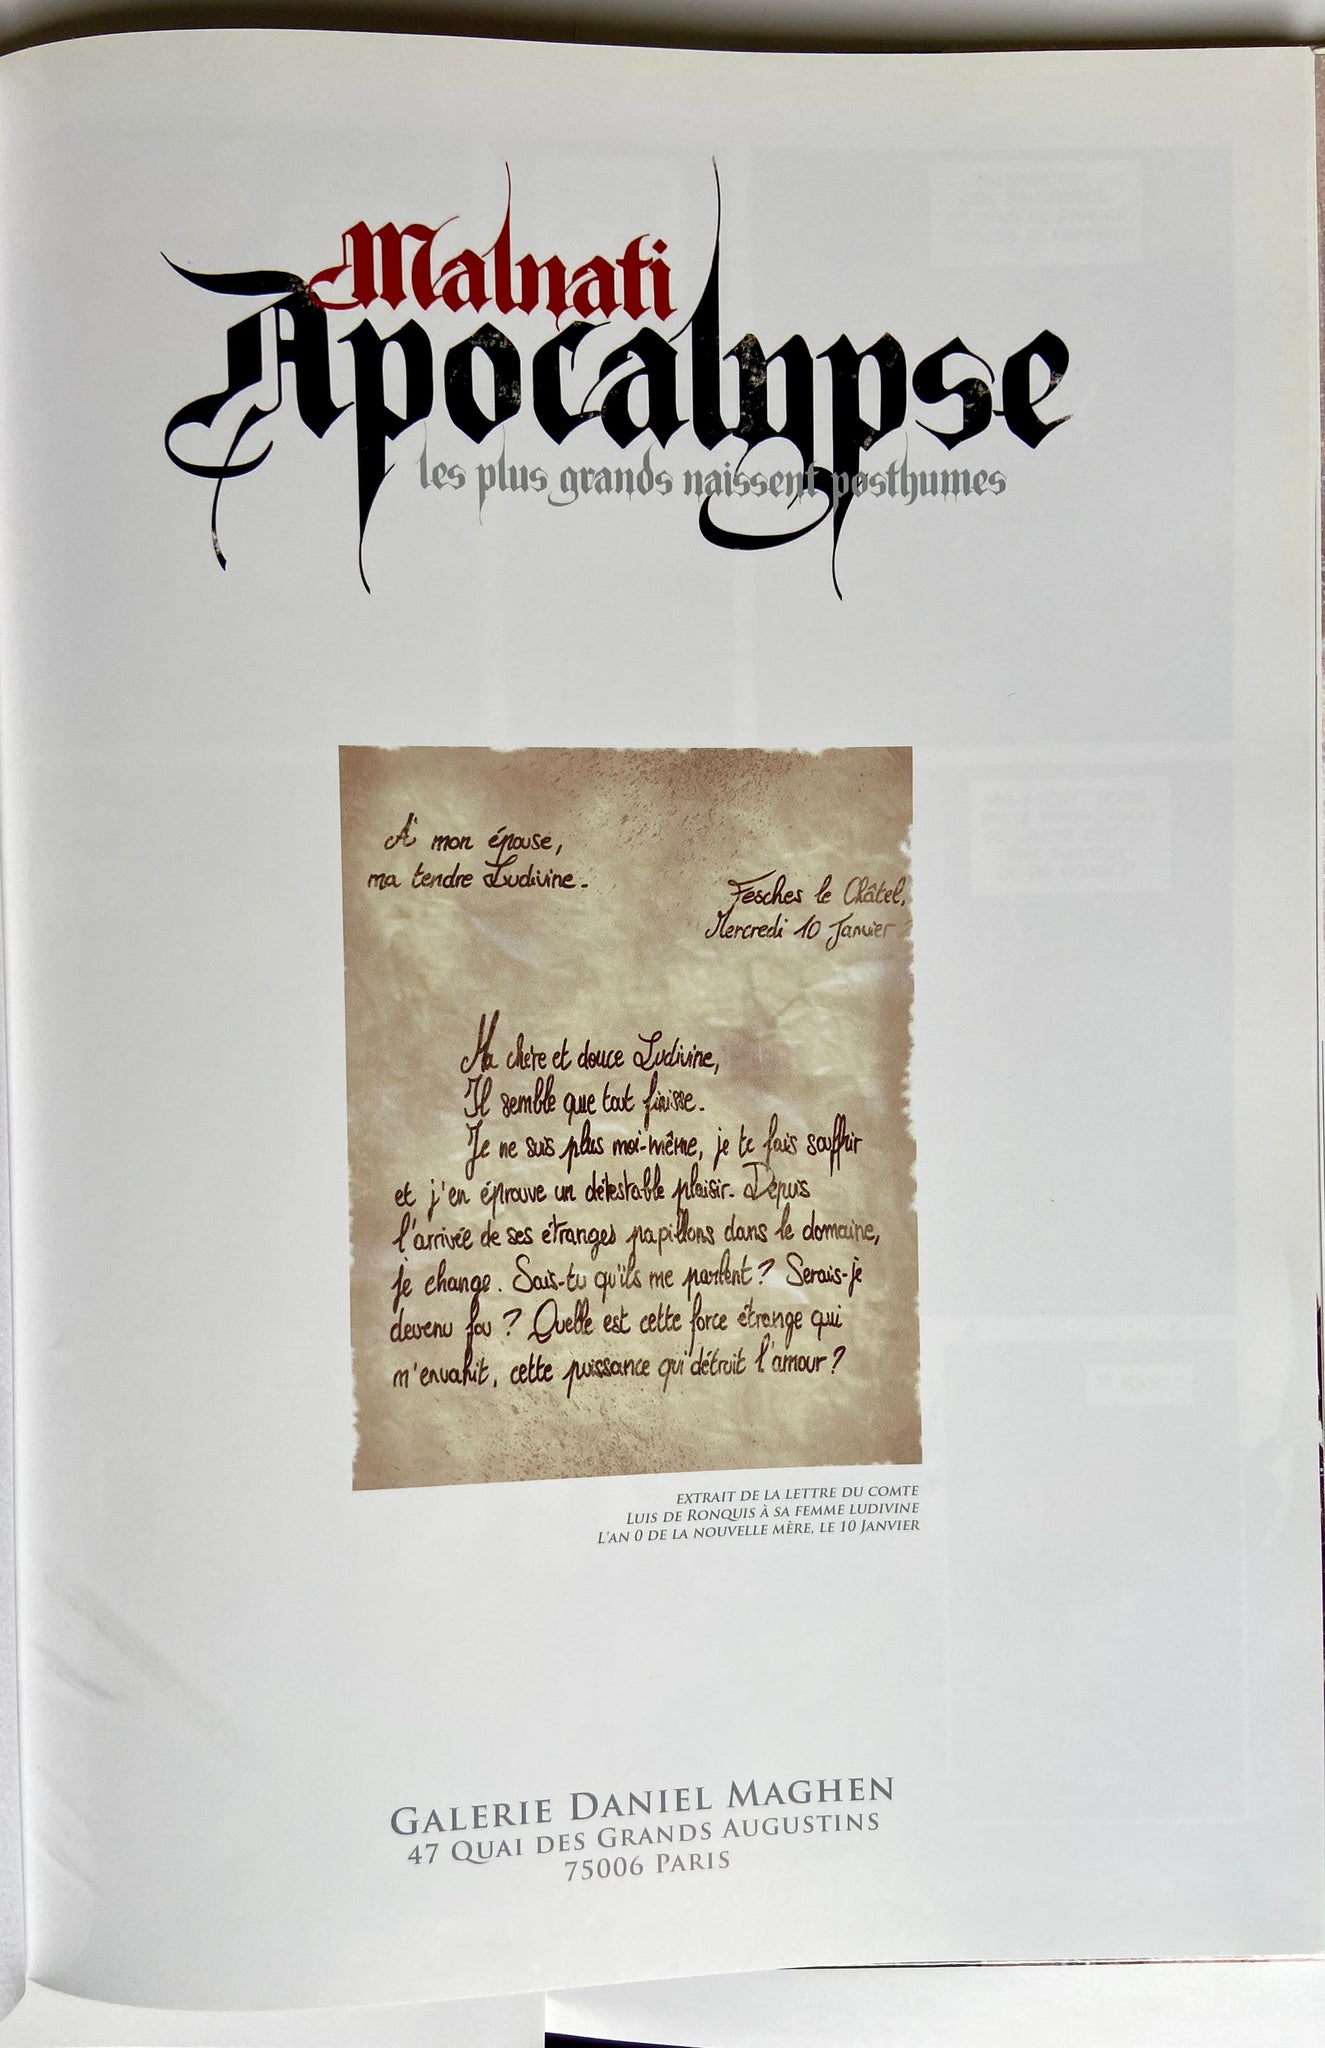 Malnati
Apocalypse
les plus grands naissent posthumes
A mon épouse,
ma tendre Ludivine.
Fesches le Châtel,
Mercredi 10 Janvier
Ma chère et douce Ludivine,
Il semble que tout finisse.
Je ne suis plus moi-même, je te fais souffrir
et j'en éprouve un détestable plaisir. Depuis
l'arrivée de ses étranges papillons dans le domaine,
je change. Sais-tu qu'ils me parlent ? Serais-je
devenu fou ? Quelle est cette force étrange qui
m'envahit, cette puissance qui détruit l'amour ?
EXTRAIT DE LA LETTRE DU COMTE
LUIS DE RONQUIS À SA FEMME LUDIVINE
L'AN 0 DE LA NOUVELLE MÈRE, LE 10 JANVIER
GALERIE DANIEL MAGHEN
47 QUAI DES GRANDS AUGUSTINS
75006 PARIS